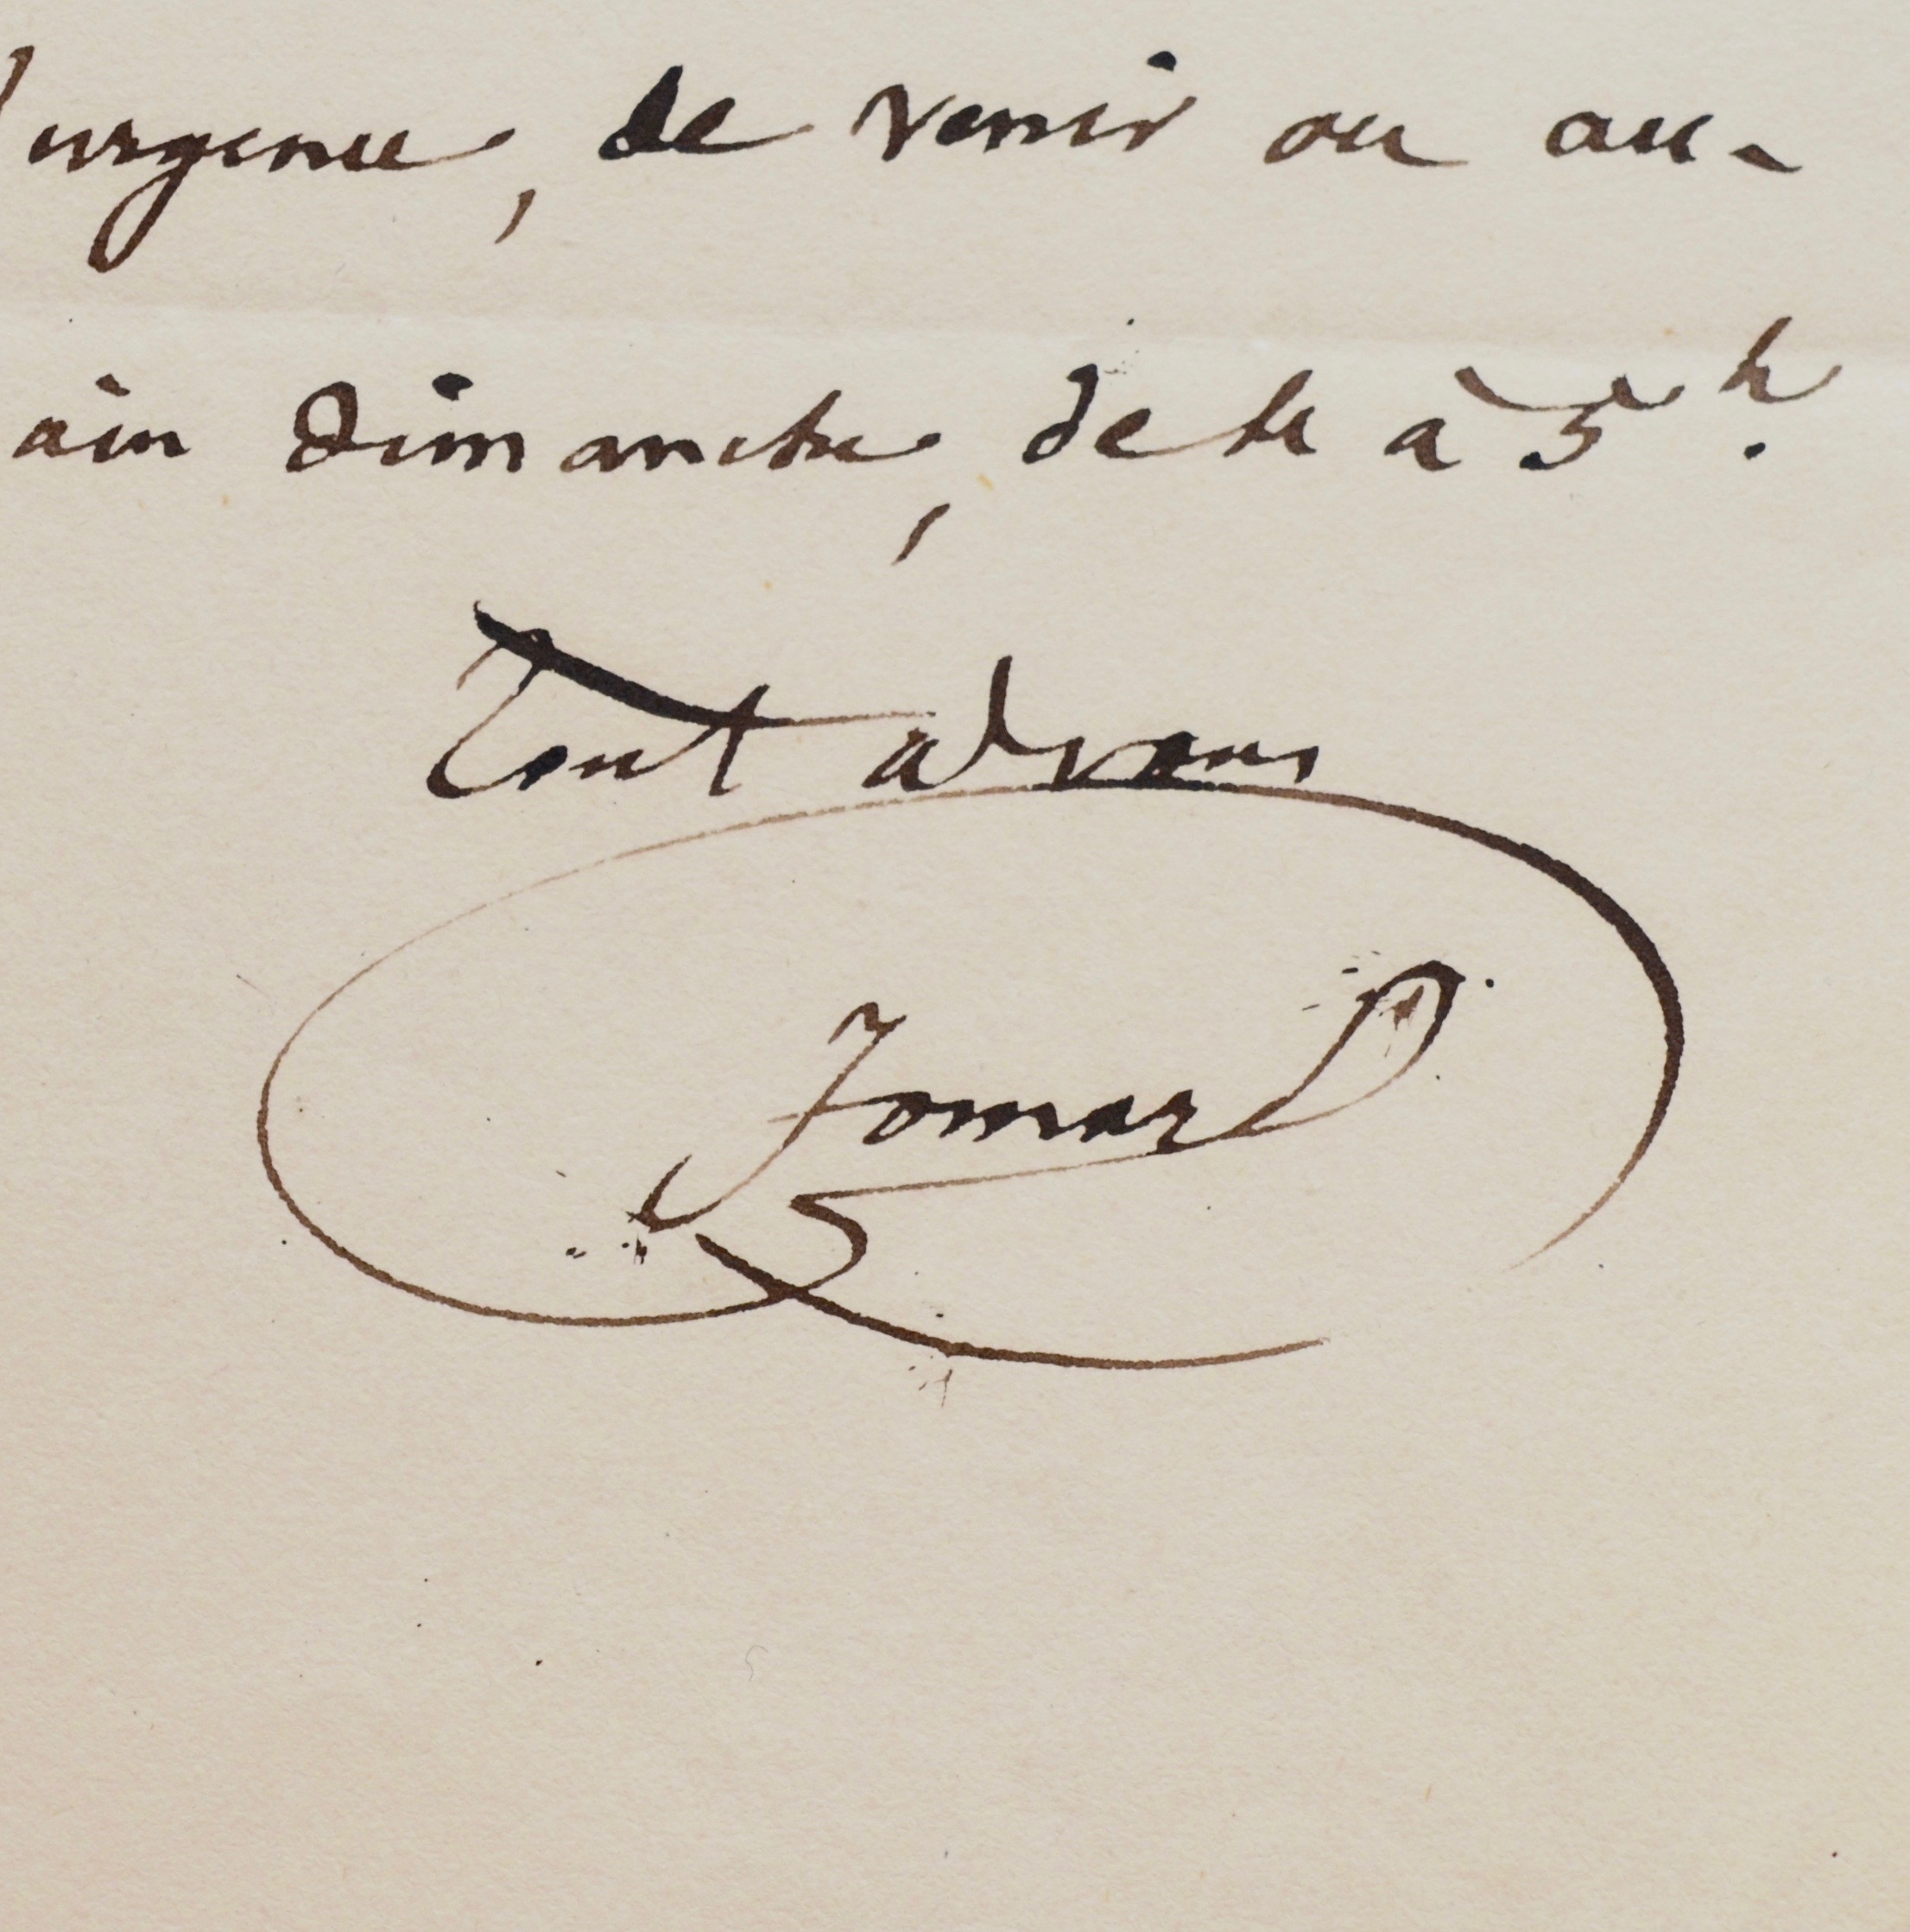 d'urgence, de venir ou au-
ain dimanche, de 4 à 5 h.
Tout à vous
Jomard